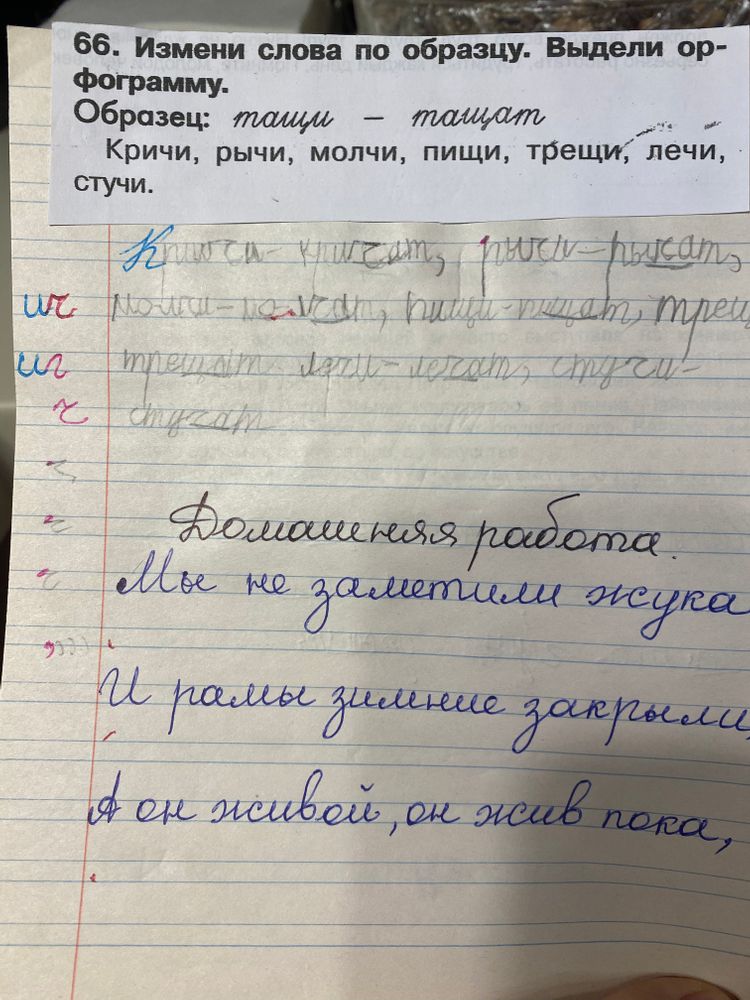 66. Измени слова по образцу. Выдели ор-
фограмму.
Образец: тащи – тащат
Кричи, рычи, молчи, пищи, трещи, лечи,
стучи.
Кричи - кричат, рычи - рычат,
ич молчи - молчат, пищи - пищат, трещ
иг трещат лечи - лечат, стучи -
ч стучат
Домашняя работа.
Мы не заметили жука
И рамы зимние закрыли,
А он живой, он жив пока,